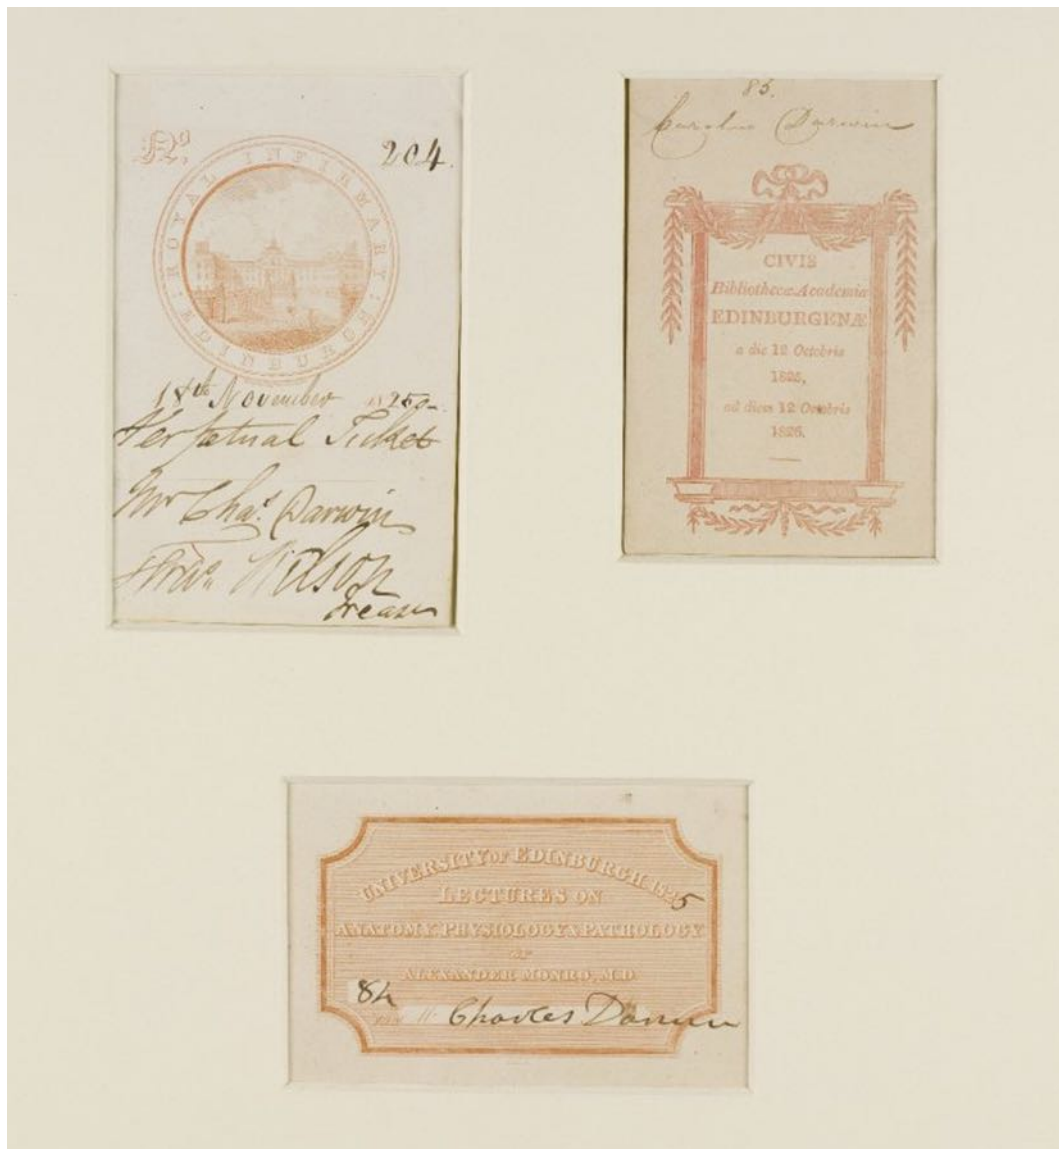 No. 204.
ROYAL INFIRMARY: EDINBURGH:
18th November 1825
Perpetual Ticket
Mr Chas. Darwin
Wilson
Treasr
85.
Carolus Darwin
CIVIS
Bibliothecæ Academiæ
EDINBURGENÆ
a die 12 Octobris
1825,
ad diem 12 Octobris
1826.
UNIVERSITY OF EDINBURGH 1825
LECTURES ON
ANATOMY, PHYSIOLOGY & PATHOLOGY
BY
ALEXANDER MONRO, M.D.
Charles Darwin